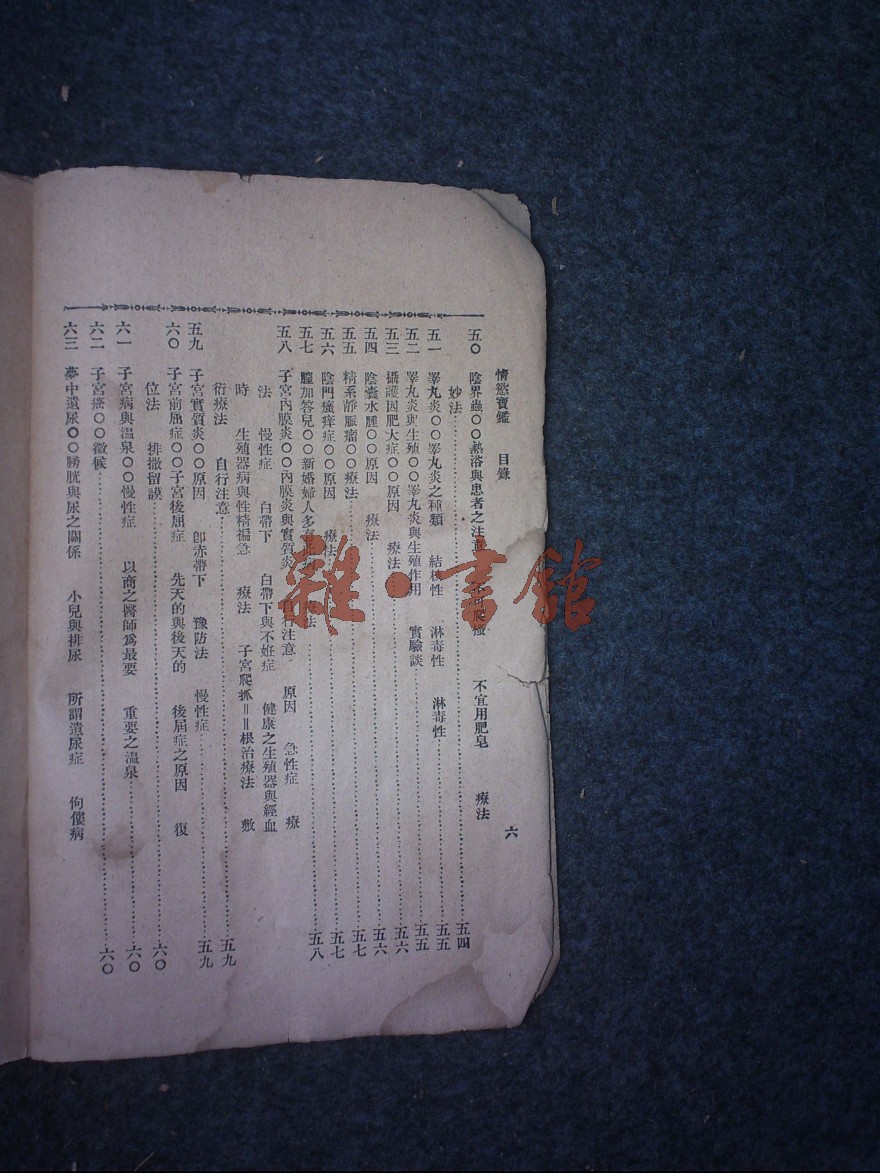 情慾寶鑑　目錄　六
五〇　陰界蟲〇〇熱浴與患者之注意　不宜用肥皂　療法
妙法……五四
五一　睾丸炎〇〇睾丸炎之種類　結核性　淋毒性　淋毒性……五五
五二　睾丸炎與生殖〇〇睾丸炎與生殖作用　實驗談……五五
五三　攝護因肥大症〇〇原因　療法……五六
五四　陰囊水腫〇〇原因　療法……五六
五五　精系靜脈瘤〇〇療法……五七
五六　陰門瘙痒症〇〇原因　療法……五七
五七　膣加答兒〇〇新婚婦人多有此病　療法……五八
五八　子宮內膜炎〇〇內膜炎與實質炎　自行注意　原因　急性症　療
法　慢性症　白帶下　白帶下與不姙症　健康之生殖器與經血
時　生殖器病與性精褊急　療法　子宮爬抓＝＝根治療法　敷
衍療法　自行注意……五九
五九　子宮實質炎〇〇原因　卽赤帶下　豫防法　慢性症……五九
六〇　子宮前屈症〇〇子宮後屈症　先天的與後天的　後屈症之原因　復
位法　排撒留謨……六〇
六一　子宮病與溫泉〇〇慢性症　以商之醫師爲最要　重要之溫泉……六〇
六二　子宮癌〇〇徵候……六〇
六三　夢中遺尿〇〇膀胱與尿之關係　小兒與排尿　所謂遺尿症　佝僂病
雜·書館